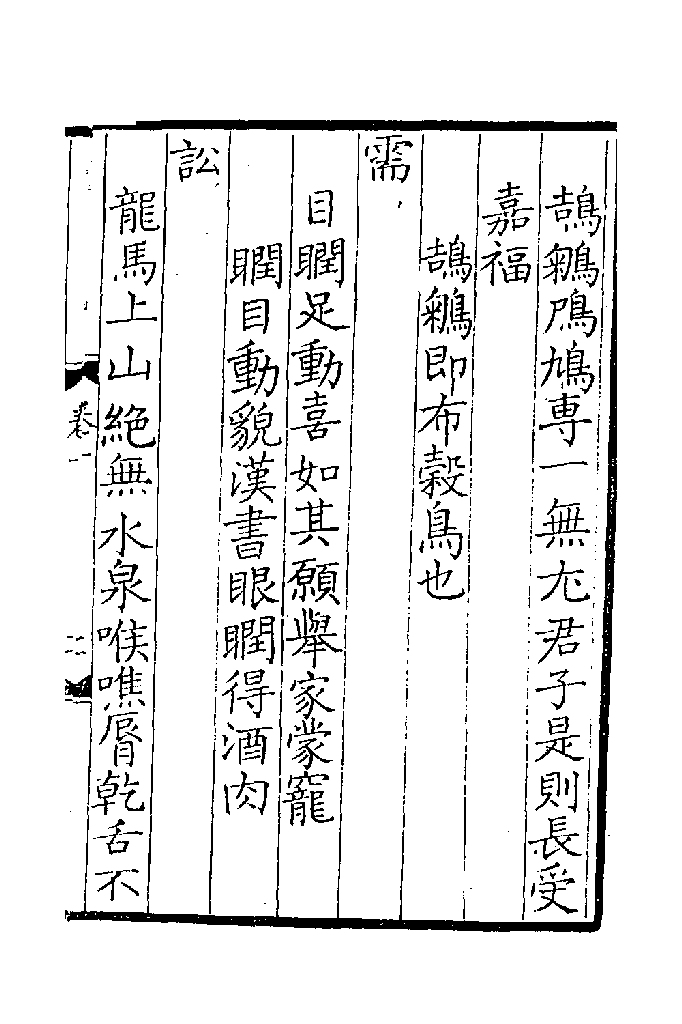 鴶鵴鳲鳩専一無尤君子是則長受
嘉福
鴶鵴即布穀鳥也
需
目瞤足動喜如其願舉家蒙寵
瞤目動貌漢書眼瞤得酒肉
訟
龍馬上山絶無水泉喉噍脣乾舌不
卷一